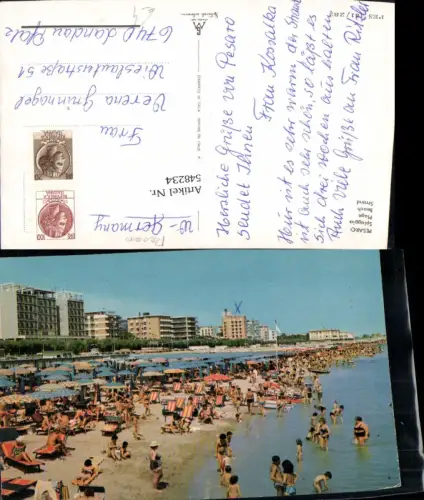 Herzliche Grüße von Pesaro
sendet Ihnen Frau Kossalka
Hier ist es sehr warm der Strand
ist auch sehr schön, so läßt es
sich drei Wochen aus halten
Auch viele Grüße an Frau
PESARO
Spiaggia
Beach
Plage
Strand
Artikel Nr.
548234
Frau
Verena Grünnagel
Wieslauterstraße 51
6740 Landau Pfalz
W-Germany
X